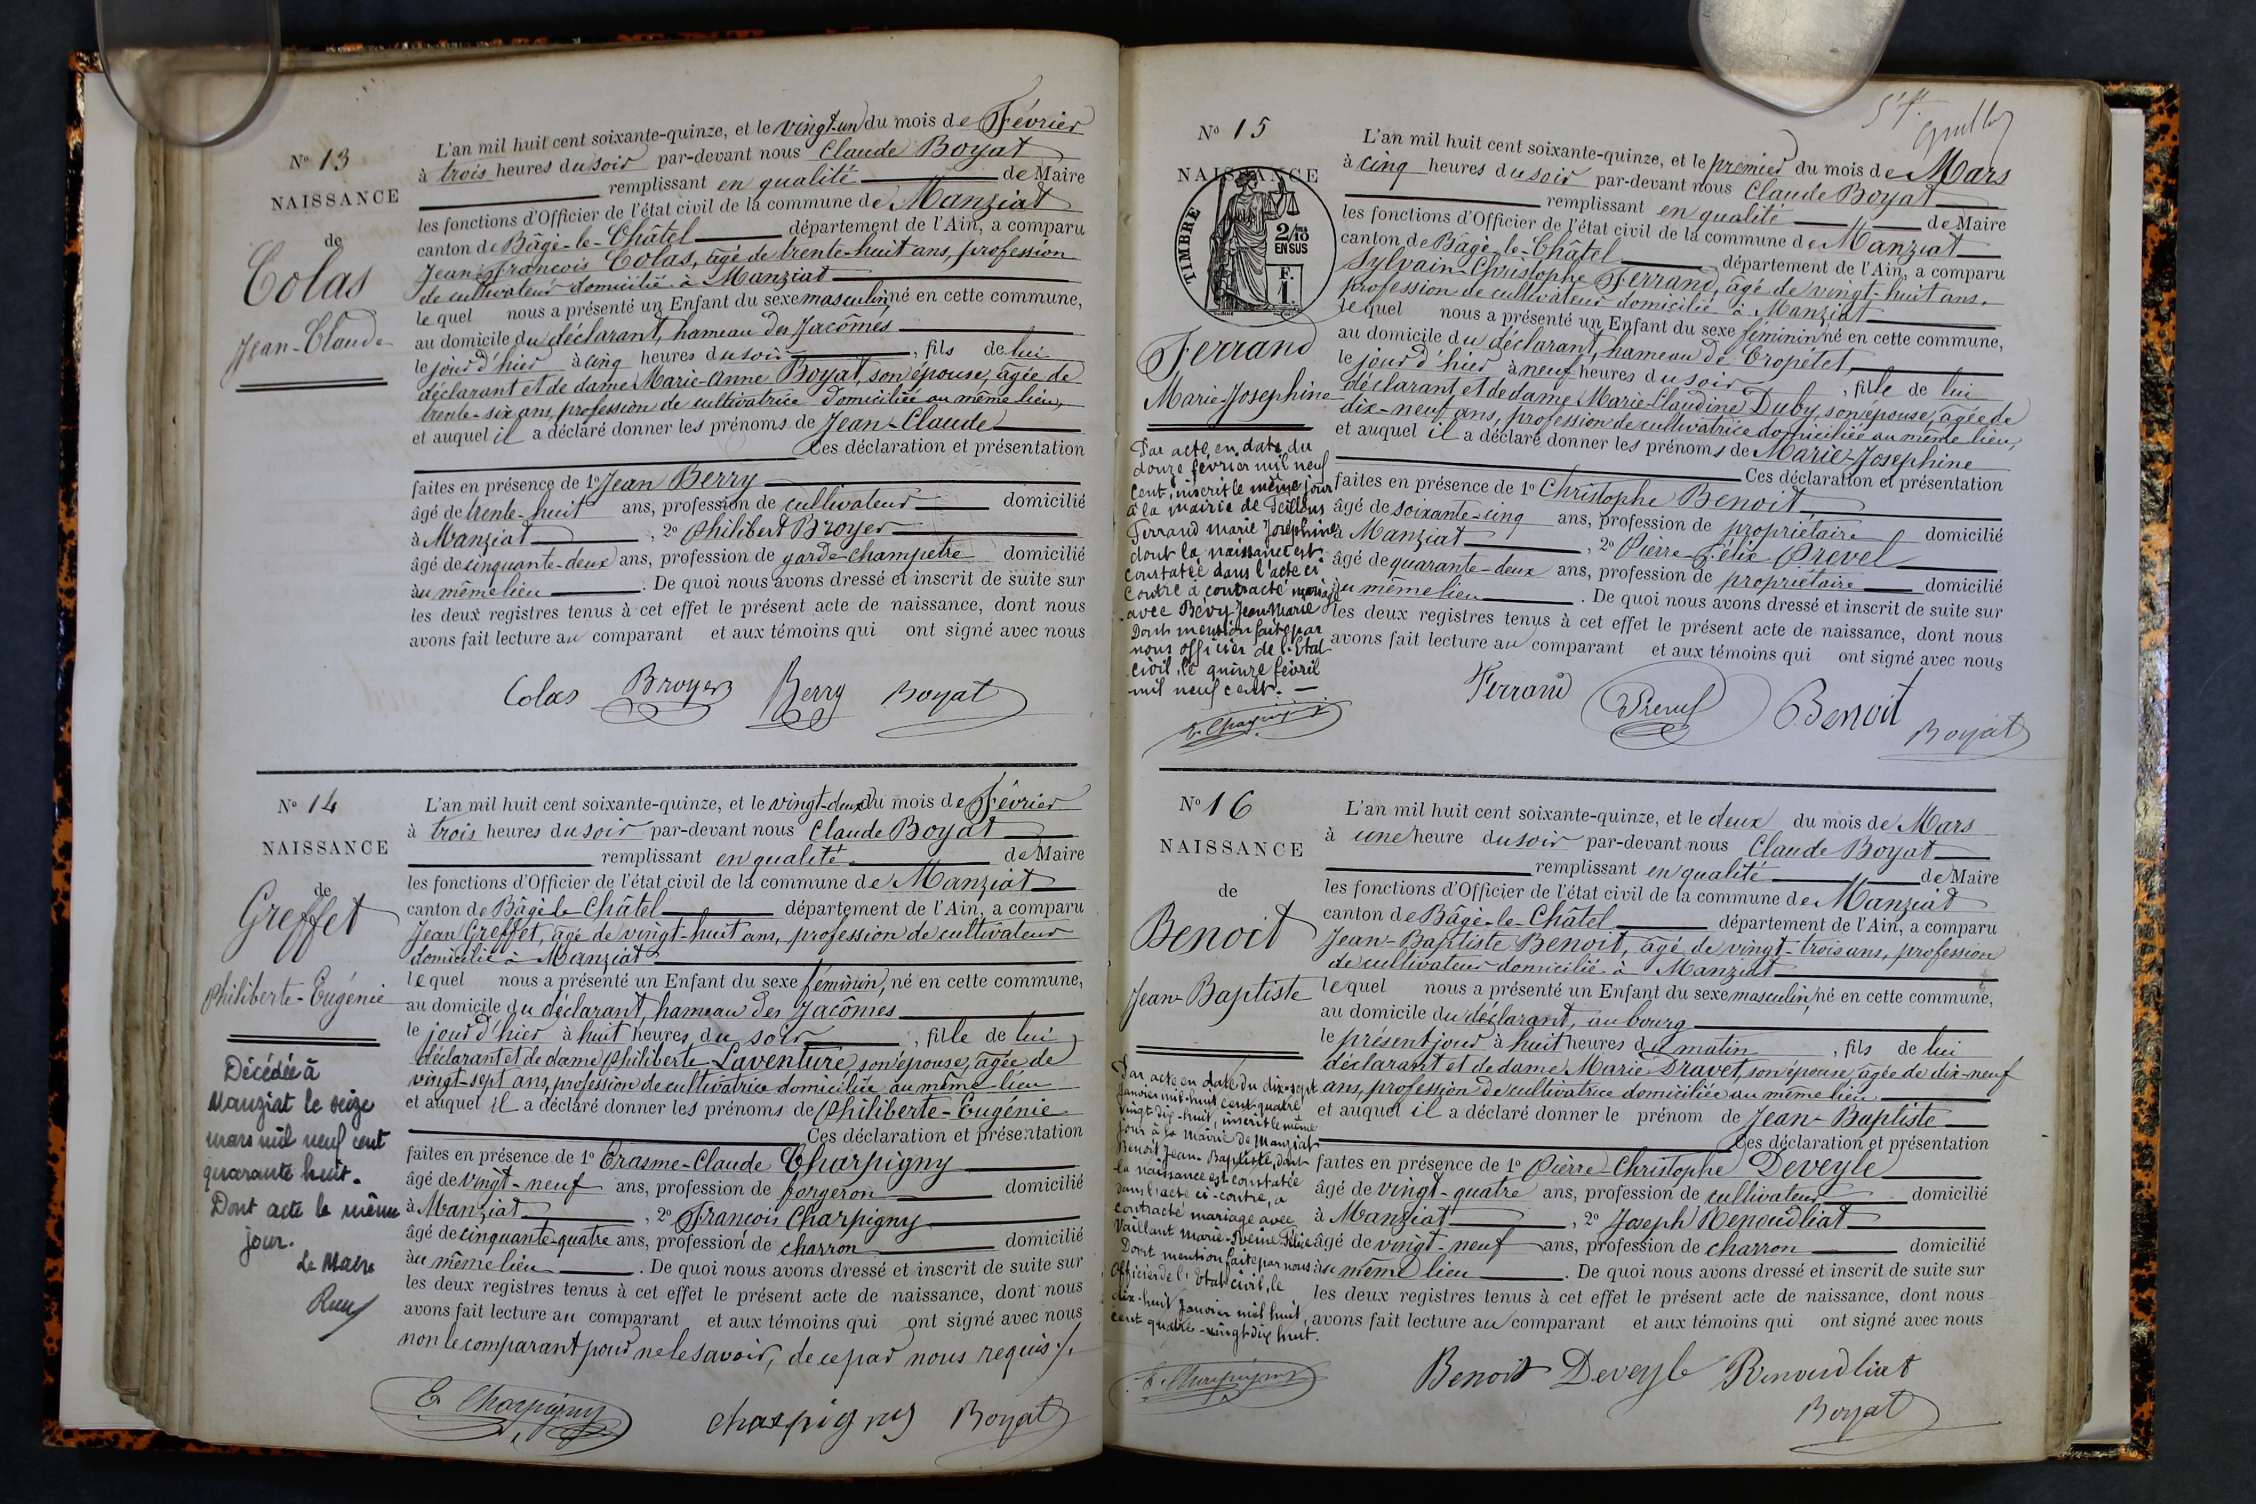 N° 13
NAISSANCE
de
Colas
Jean-Claude
L'an mil huit cent soixante-quinze, et le vingt-un du mois de Février
à trois heures du soir par-devant nous Claude Boyat
remplissant en qualité de Maire
les fonctions d'Officier de l'état civil de la commune de Manziat
canton de Bâgé-le-Châtel département de l'Ain, a comparu
Jean-François Colas, âgé de trente-huit ans, profession
de cultivateur domicilié à Manziat
lequel nous a présenté un Enfant du sexe masculin, né en cette commune,
au domicile du déclarant, hameau des Jacômes
le jour d'hier à cinq heures du soir, fils de lui
déclarant et de dame Marie-Anne Boyat, son épouse, agée de
trente-six ans, profession de cultivatrice domiciliée au même lieu,
et auquel il a déclaré donner les prénoms de Jean-Claude
Ces déclaration et présentation
faites en présence de 1° Jean Berry
âgé de trente-huit ans, profession de cultivateur domicilié
à Manziat, 2° Philibert Broyer
âgé de cinquante-deux ans, profession de garde-champetre domicilié
au même lieu. De quoi nous avons dressé et inscrit de suite sur
les deux registres tenus à cet effet le présent acte de naissance, dont nous
avons fait lecture au comparant et aux témoins qui ont signé avec nous
Colas Broyer Berry Boyat
N° 14
NAISSANCE
de
Greffet
Philiberte-Eugénie
Décédée à
Manziat le seize
mars mil neuf cent
quarante huit.
Dont acte le même
jour.
Le Maire
L'an mil huit cent soixante-quinze, et le vingt-deux du mois de Février
à trois heures du soir par-devant nous Claude Boyat
remplissant en qualité de Maire
les fonctions d'Officier de l'état civil de la commune de Manziat
canton de Bâgé-le-Châtel département de l'Ain, a comparu
Jean Greffet, âgé de vingt-huit ans, profession de cultivateur
domicilié à Manziat
lequel nous a présenté un Enfant du sexe féminin, né en cette commune,
au domicile du déclarant, hameau des Jacômes
le jour d'hier à huit heures du soir, fille de lui
déclarant et de dame Philiberte Laventure, son épouse, agée de
vingt-sept ans, profession de cultivatrice domiciliée au même lieu
et auquel il a déclaré donner les prénoms de Philiberte-Eugénie
Ces déclaration et présentation
faites en présence de 1° Erasme-Claude Charpigny
âgé de vingt-neuf ans, profession de forgeron domicilié
à Manziat, 2° François Charpigny
âgé de cinquante-quatre ans, profession de charron domicilié
au même lieu. De quoi nous avons dressé et inscrit de suite sur
les deux registres tenus à cet effet le présent acte de naissance, dont nous
avons fait lecture au comparant et aux témoins qui ont signé avec nous
non le comparant pour ne le savoir, de ce par nous requis./.
E. Charpigny charpigny Boyat
N° 15
NAISSANCE
TIMBRE
2/10
EN SUS
F.
1
Ferrand
Marie-Josephine
Par acte, en date du
douze février mil neuf
cent, inscrit le même jour
à la mairie de Feillens
Ferrand marie Joséphine
dont la naissance est
constatée dans l'acte ci
contre a contracté mariage
avec Bevy Jean Marie
Dont mention faite par
nous officier de l'Etat
civil, le quinze février
mil neuf cent.
E. Charpigny
L'an mil huit cent soixante-quinze, et le premier du mois de Mars
à cinq heures du soir par-devant nous Claude Boyat
remplissant en qualité de Maire
les fonctions d'Officier de l'état civil de la commune de Manziat
canton de Bâgé-le-Châtel département de l'Ain, a comparu
Sylvain-Christophe Ferrand, âgé de vingt-huit ans,
profession de cultivateur domicilié à Manziat
lequel nous a présenté un Enfant du sexe féminin né en cette commune,
au domicile du déclarant, hameau de Cropétet,
le jour d'hier à neuf heures du soir, fille de lui
déclarant et de dame Marie-Claudine Duby, son épouse, agée de
dix-neuf ans, profession de cultivatrice domiciliée au même lieu,
et auquel il a déclaré donner les prénoms de Marie-Josephine
Ces déclaration et présentation
faites en présence de 1° Christophe Benoit
âgé de soixante-cinq ans, profession de propriétaire domicilié
à Manziat, 2° Pierre-Félix Prevel
âgé de quarante-deux ans, profession de propriétaire domicilié
au même lieu. De quoi nous avons dressé et inscrit de suite sur
les deux registres tenus à cet effet le présent acte de naissance, dont nous
avons fait lecture au comparant et aux témoins qui ont signé avec nous
Ferrand Prevel Benoit Boyat
N° 16
NAISSANCE
de
Benoit
Jean-Baptiste
Par acte en date du dix-sept
Janvier mil-huit cent-quatre
vingt-dix-huit, inscrit le même
jour à la mairie de Manziat
Benoit Jean-Baptiste, dont
la naissance est constatée
dans l'acte ci-contre, a
contracté mariage avec
Vaillant Marie-
Dont mention faite par nous
Officier de l'Etat civil, le
dix-huit Janvier mil huit
cent quatre-vingt-dix huit.
E. Charpigny
L'an mil huit cent soixante-quinze, et le deux du mois de Mars
à une heure du soir par-devant nous Claude Boyat
remplissant en qualité de Maire
les fonctions d'Officier de l'état civil de la commune de Manziat
canton de Bâgé-le-Châtel département de l'Ain, a comparu
Jean-Baptiste Benoit, âgé de vingt-trois ans, profession
de cultivateur domicilié à Manziat
lequel nous a présenté un Enfant du sexe masculin, né en cette commune,
au domicile du déclarant, au bourg
le présent jour à huit heures du matin, fils de lui
déclarant et de dame Marie Dravet, son épouse, agée de dix-neuf
ans, profession de cultivatrice domiciliée au même lieu
et auquel il a déclaré donner le prénom de Jean-Baptiste
Ces déclaration et présentation
faites en présence de 1° Pierre-Christophe Deveyle
âgé de vingt-quatre ans, profession de cultivateur domicilié
à Manziat, 2° Joseph Renoudliat
âgé de vingt-neuf ans, profession de charron domicilié
au même lieu. De quoi nous avons dressé et inscrit de suite sur
les deux registres tenus à cet effet le présent acte de naissance, dont nous
avons fait lecture au comparant et aux témoins qui ont signé avec nous
Benoit Deveyle Renoudliat
Boyat